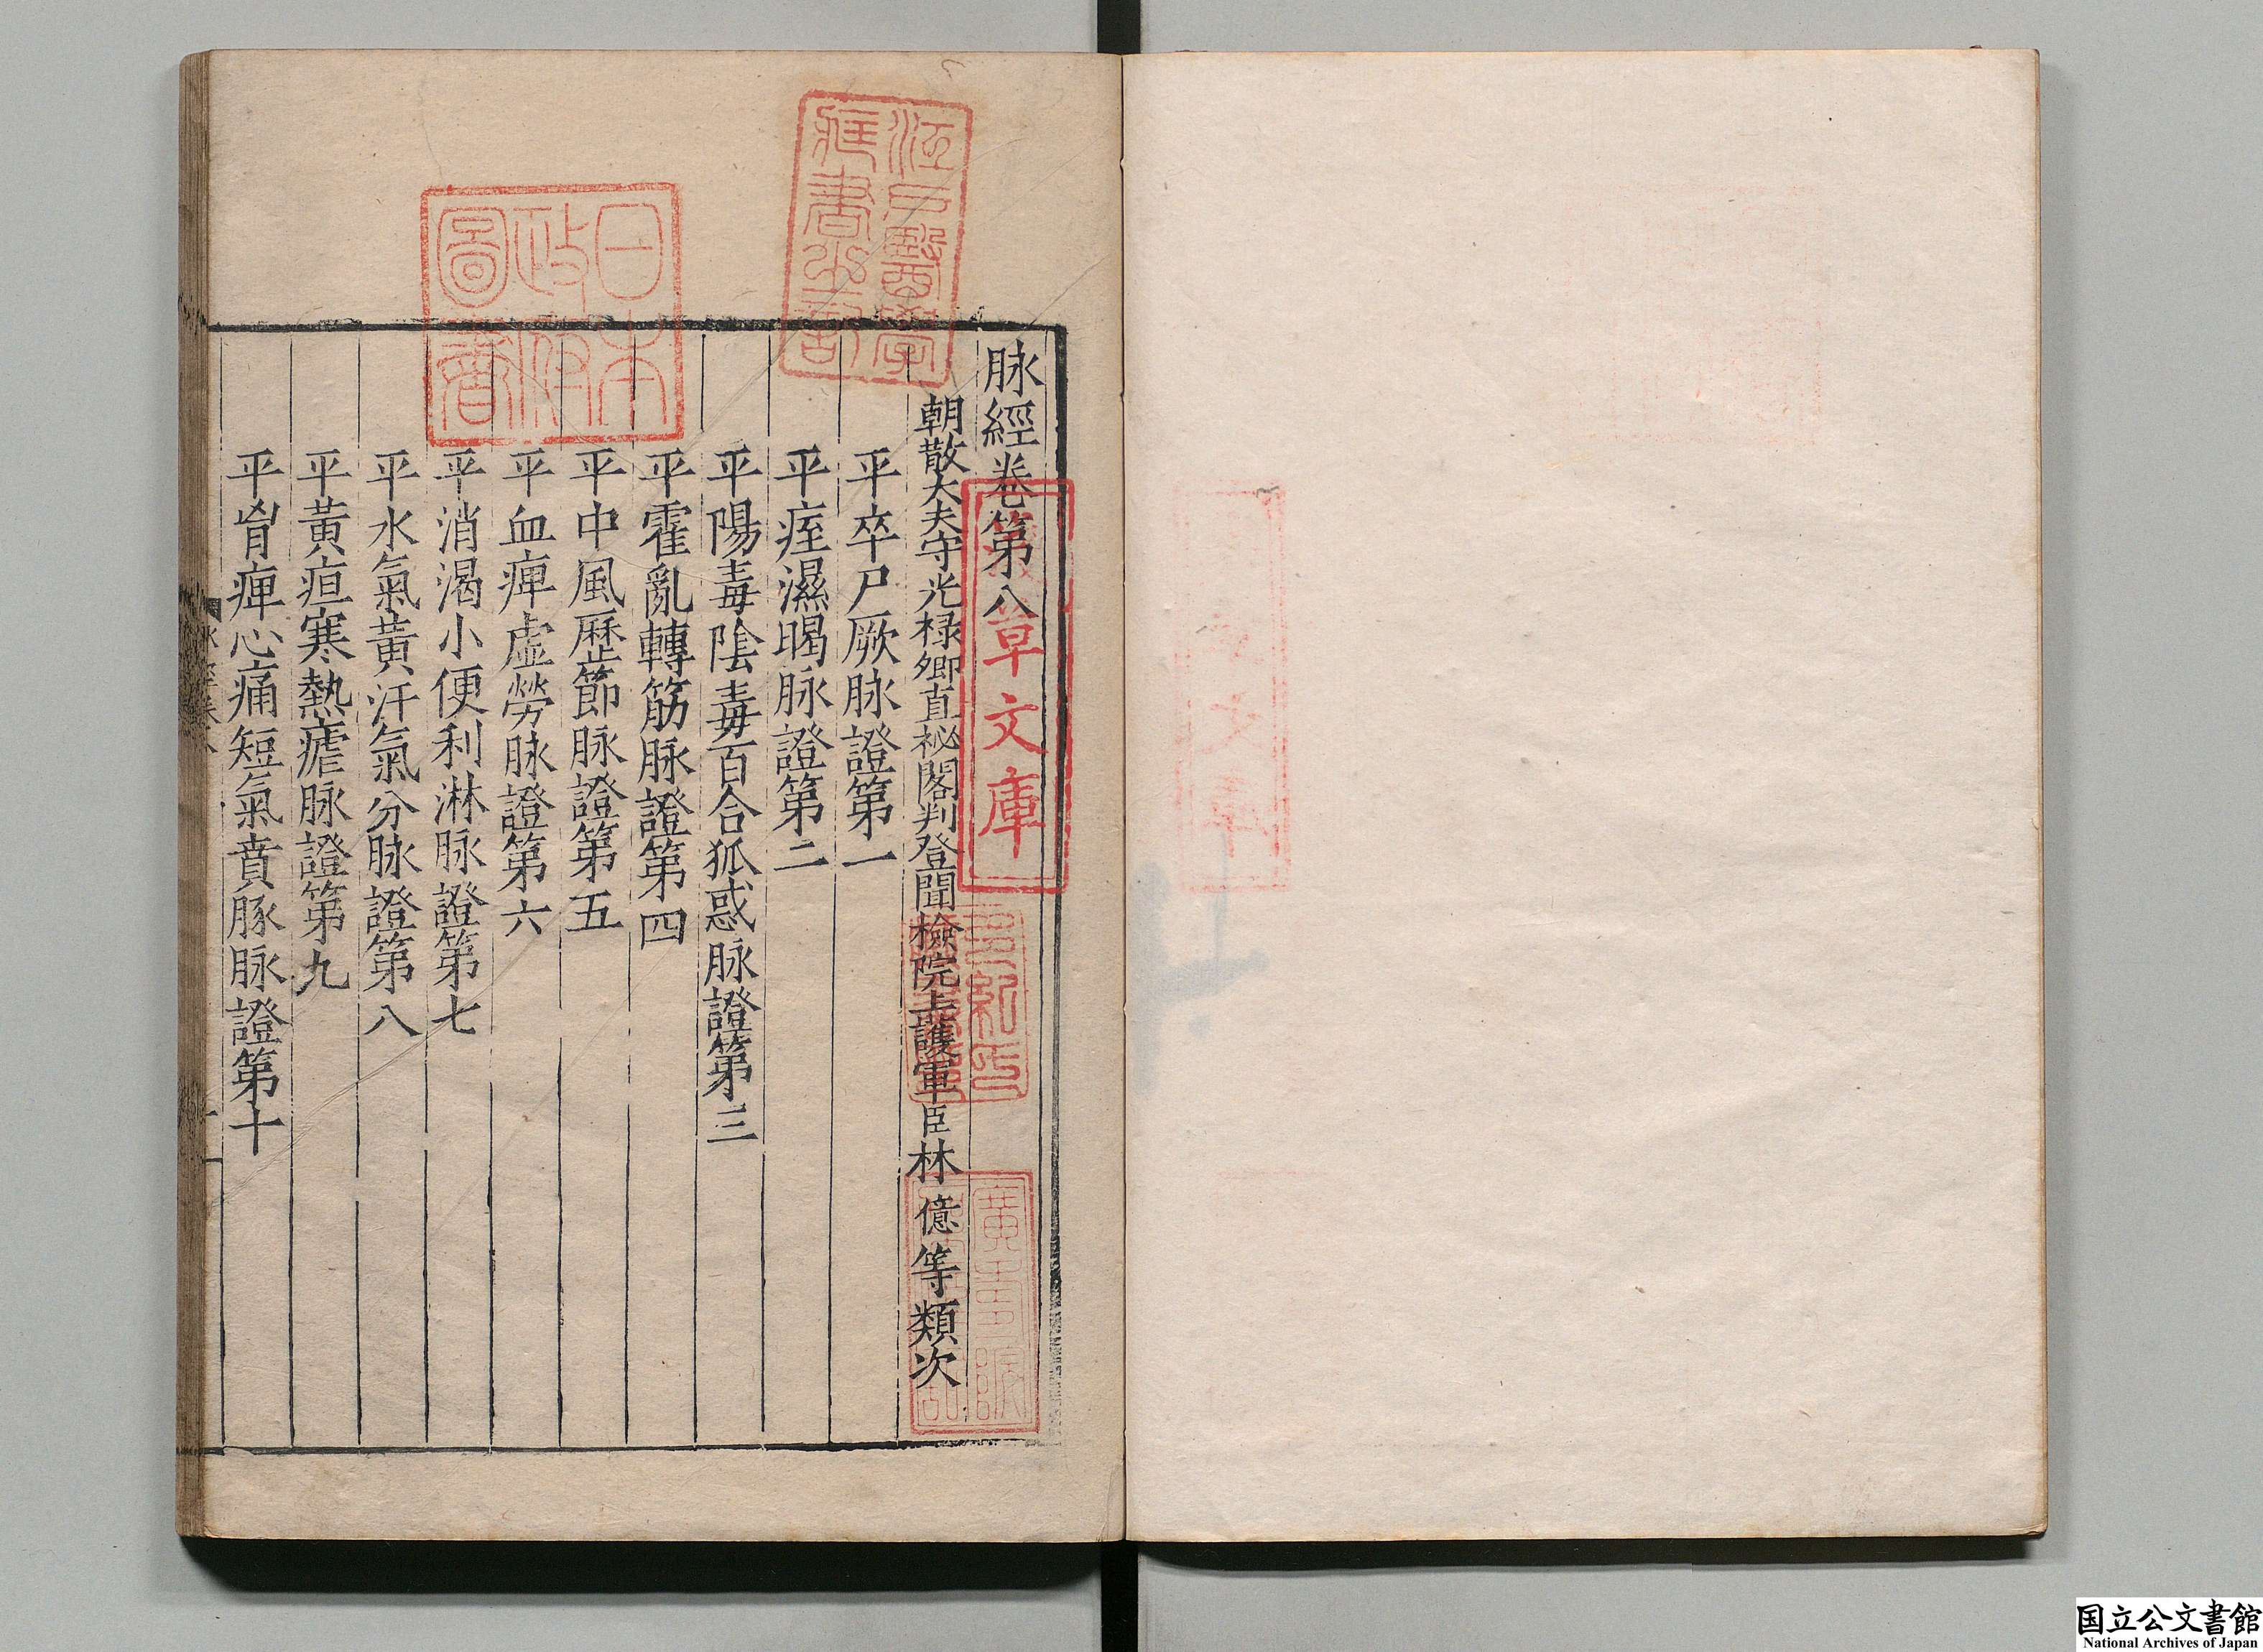 脉經卷第八
朝散大夫守光祿卿直祕閣判登聞檢院上護軍臣林億等類次
平卒尸厥脉證第一
平痓濕暍脉證第二
平陽毒陰毒百合狐惑脉證第三
平霍亂轉筋脉證第四
平中風歷節脉證第五
平血痺虛勞脉證第六
平消渴小便利淋脉證第七
平水氣黃汗氣分脉證第八
平黃疸寒熱瘧脉證第九
平胷痺心痛短氣賁豚脉證第十
江戸醫學
藏書之記
日本
政府
圖書
草文庫
国立公文書館
National Archives of Japan